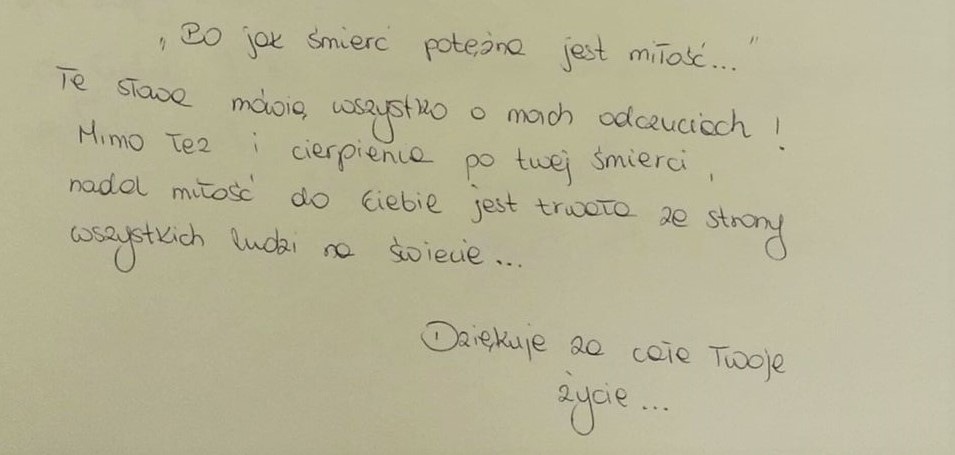 "Bo jak śmierć potężna jest miłość..."
Te słowa mówią wszystko o moich odczuciach!
Mimo łez i cierpienia po twej śmierci,
nadal miłość do Ciebie jest trwała ze strony
wszystkich ludzi na świecie...
Dziękuje za całe Twoje
życie...